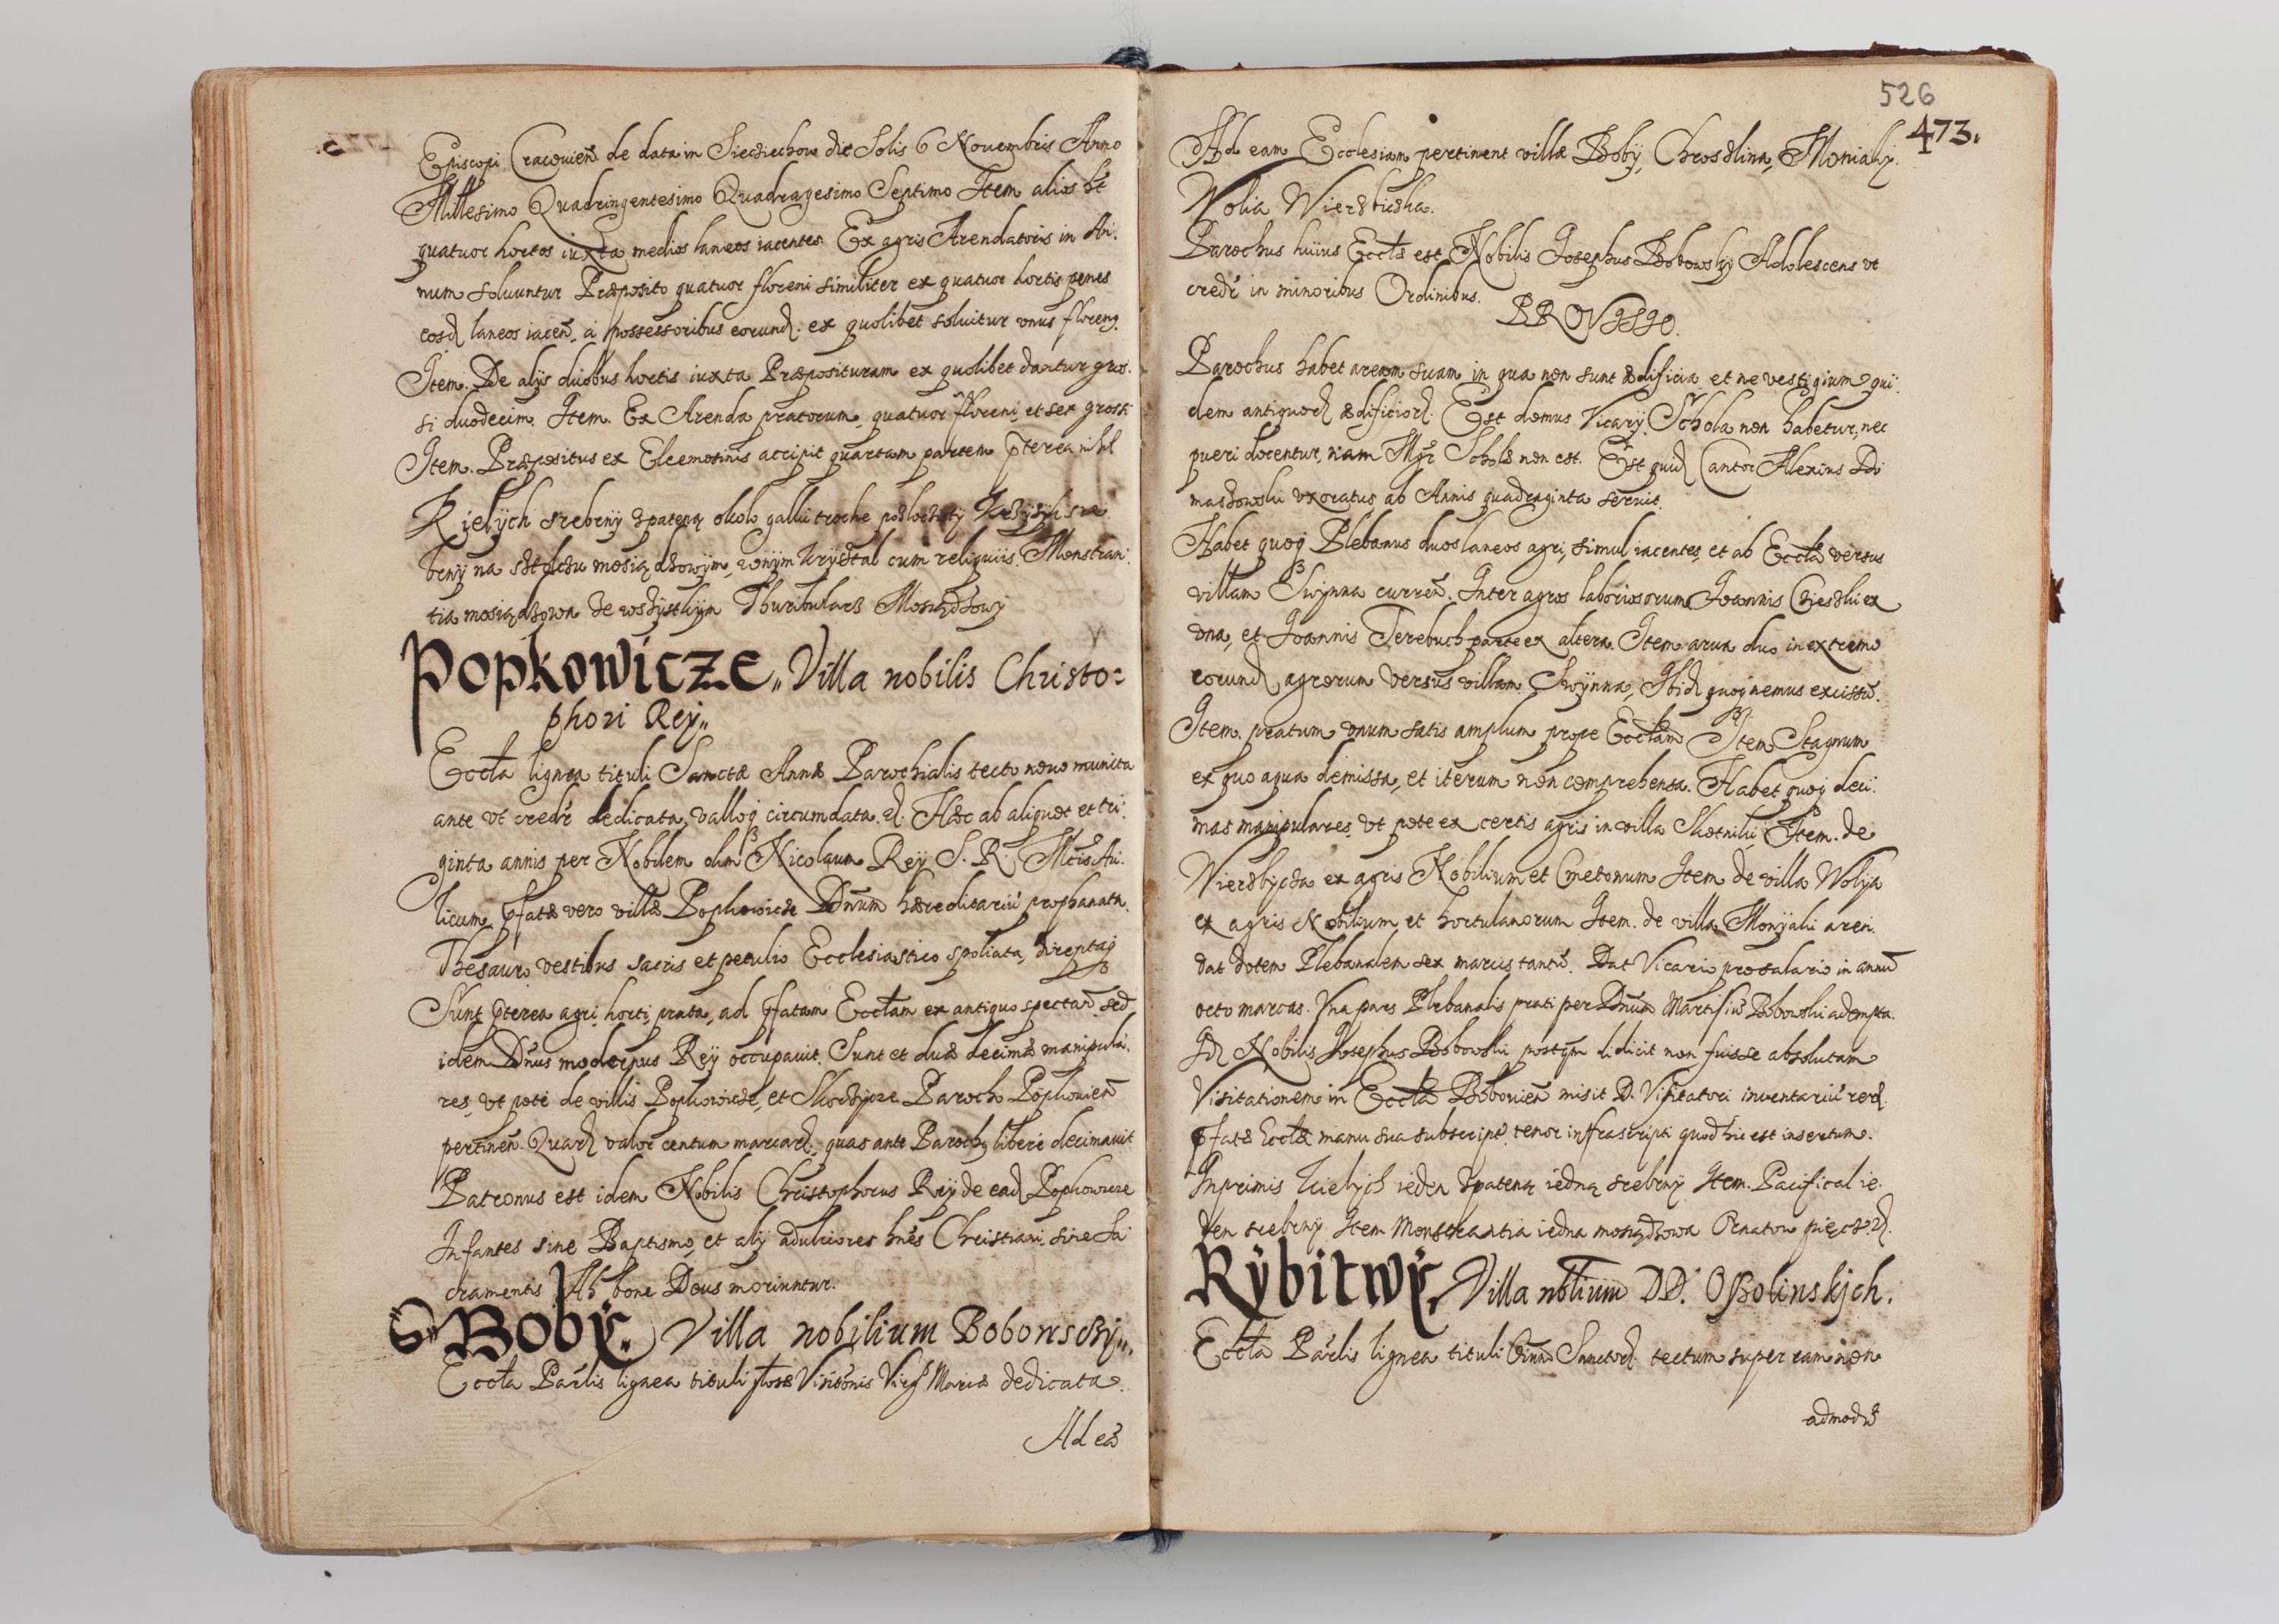 Episcopi Cracouien̄. de data in Sieciechow die Solis 6 Nouembris Anno
Millesimo Quadringentesimo Quadragesimo Septimo Item alios ht̄
quatuor hortos iuxta medios laneos iacentes. Ex agris Arendatoris in An:
num soluuntur Præposito quatuor floreni similiter ex quatuor hortis penes
eosd laneos iacen̄. á possessoribus eorund. ex quolibet soluitur vnus floreng.
Item. De alijs duobus hortis iuxta Præposituram ex quolibet dantur gros:
si duodecim. Item. Ex Arenda pratorum, quatuor floreni, et sex grossi
Item. Præpositus ex Eleemosinis accipit quartam partem pterea nihil
Kielÿch srebrnÿ spateną okolo galki troche pozloczistÿ Krzÿzÿk sre
brnÿ na stolcżu mosiądzowÿm, wnÿm krÿsztal cum reliquiis. Monstran:
tia mosiądzowa ze wszÿstkÿm Thuribularz Mosiądzowÿ
Popkowicze,, Villa nobilis Christo:
phori Reÿ,,
Eccła lignea tituli Sanctæ Annæ Parochialis tecto nouo munita
ante vt credr̄ dedicata, valloq circumdata. Hæc ab aliquot et tri:
ginta annis per Nobilem olim Nicolaum Reÿ S. R. Mtis Au:
licum pfatæ vero villæ Popkowicze Dnum hæreditariū prophanata.
Thesauro vestibus sacris et petulio Ecclesiastico spoliata, direptaq
Sunt pterea agri, horti, prata, ad pfatam Eccłam ex antiquo spectan̄. sed
idem Dnus modernus Reÿ occupauit. Sunt et duæ decimæ manipula:
res, vt pote de villis Popkowicze, et Skorczÿce Parocho Popkouien̄
pertinen̄. Quard valor centum marcard. quas ante Parochg liberè decimauit
Patronus est idem Nobilis Christophorus Reÿ de ead Popkowicze
Infantes sine Baptismo, et alÿ adultiores hnes Christiani sine Sa
cramentis Ah bone Deus moriuntur.
Bobÿ. Villa nobilium Bobowsczÿ,,.
Eccła Par̄lis lignea tituli ftoæ Visitonis Virgs Mariæ dedicata.
Ad eā
526
473.
Ad eam Ecclesiam pertinent villæ Bobÿ, Chroszlina, Moniaky.
Wolia Wierzbiczka.
Parochus huius Ecclæ est Nobilis Josephus Bobowskÿ Adolescens vt
credr̄ in minoribus Ordinibus.
PROVISIO.
Parochus habet aream suam in qua non sunt ædificia et ne vestigium qui:
dem antiquord ædificiord. Est domus Vicarÿ. Schola non habetur, nec
pueri docentur, nam Mgr̄ Scholæ non est. Est quid Cantor Alexius Do
maszowski vxoratus ab Annis quadraginta seruit.
Habet quoq Plebanus duos laneos agri, simul iacentes, et ab Eccła versus
villam Swÿnna curren̄. Inter agros laboriosorum Joannis Czieszki ex
vna, et Joannis Terebuch parte ex altera. Item arua duo in extremo
eorund agrorum versus villam Swÿnna, Ibid quoq nemus excissū.
Item. pratum vnum satis amplum prope Eccłam. Item Stagnum
ex quo aqua demissa, et iterum non comprehensa. Habet quoq deci:
mas manipulares, vt pote ex certis agris in villa Skotniki, Item. de
Vierzbÿcza ex agris Nobilium et Cmetonum Item de villa Wolÿa
ex agris Nobilium et hortulanorum Item. de villa Monÿaki aren:
dat dotem Plebanalem sex marcis tantū. Dat Vicario pro salario in annū
octo marcas. Vna pars Plebanalis prati per Dnum Martisiū Bobowski adempta.
Id Nobilis Josephus Bobowski postqm didicit non fuisse absolutam
Visitationem in Eccła Bobouien̄ misit D. Visitatori inventariū rerd.
pfatæ Eccłæ manu sua subscript. tenor infrascripti quod hic est insertum.
Inprimis kielÿch ieden spateną iedną srebrnÿ Item. Pacifical ie:
den srebrnÿ Item Monstrantia iedna mosiądzowa Ornatow pięcz.
Rÿbitwÿ, Villa nbłium DD. Ossolinskjch.
Eccła Par̄lis lignea tituli Oīum Sanctord. tectum super eam non
admodū